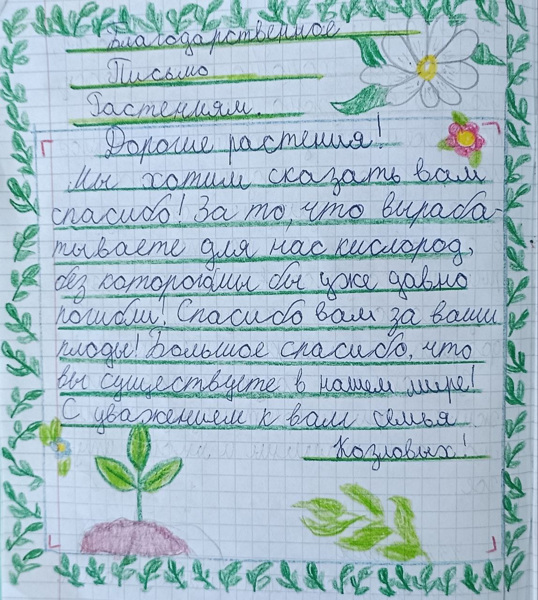 Благодарственное
Письмо
Растениям.
Дорогие растения!
Мы хотим сказать вам
спасибо! За то, что выраба-
тываете для нас кислород,
без которого мы бы уже давно
погибли! Спасибо вам за ваши
плоды! Большое спасибо, что
вы существуете в нашем мире!
С уважением к вам семья
Козловых!